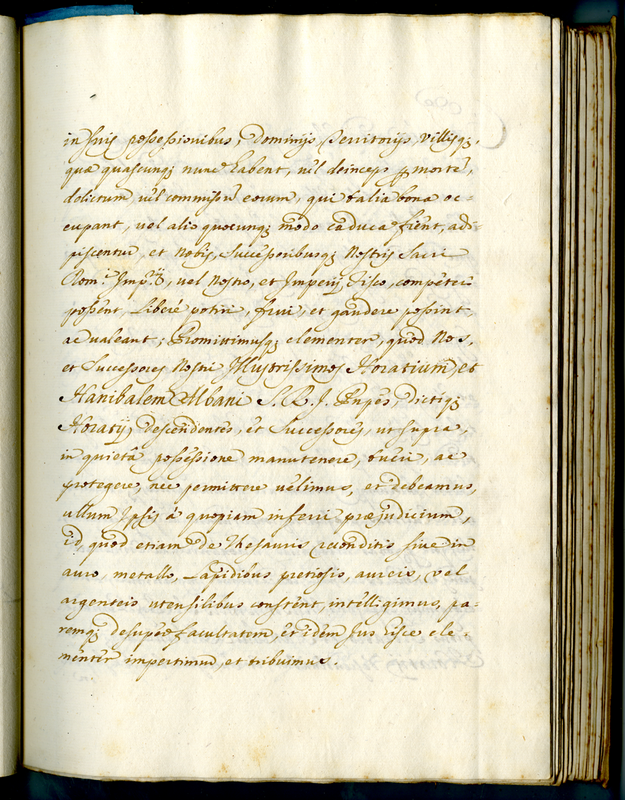 in suis possessionibus, Dominijs Territorijs, Villisq;
quæ quascunq; nunc habent, vel deinceps per morte,
delictum vel commissu eorum, qui talia bona oc-
cupant, vel alio quocunq; modo caduca fient, adi-
piscentur, et Nobis, Successoribusq; Nostris Sacri
Rom: Imp:, vel Nostro, et Imperij Fisco, competere
possent, Liberé potiri, frui, et gaudere possint,
ac valeant; Promittimusq; clementer, quód Nos,
et Successores Nostri Illustrissimos Horatium, et
Hanibalem Albani S. R. I. Pnpes, dictiq;
Horatij, descendentes, et Successores, ut supra,
in quietâ possessione manutenere, tueri, ac
protegere, nec permittere velimus, et debeamus,
ullum Ipsis á quopiam inferri præjudicium,
id quod etiam de Thesauris reconditis sive in
auro, metallo, Lapidibus pretiosis, aureis, vel
argenteis utensilibus constent, intelligimus, pa-
remq; desuper facultatem, et idem Jus Fisci cle-
menter impertimur, et tribuimus.